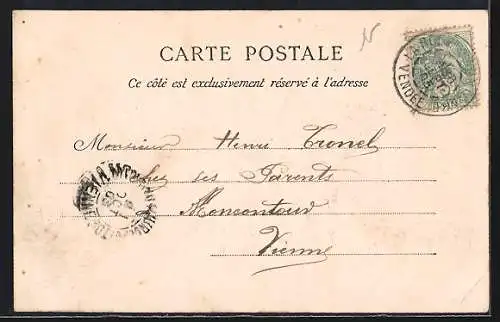 CARTE POSTALE
Ce côté est exclusivement réservé à l'adresse
Monsieur Henri
chez ses Parents
Moncontour
Vienne
VENDÉE